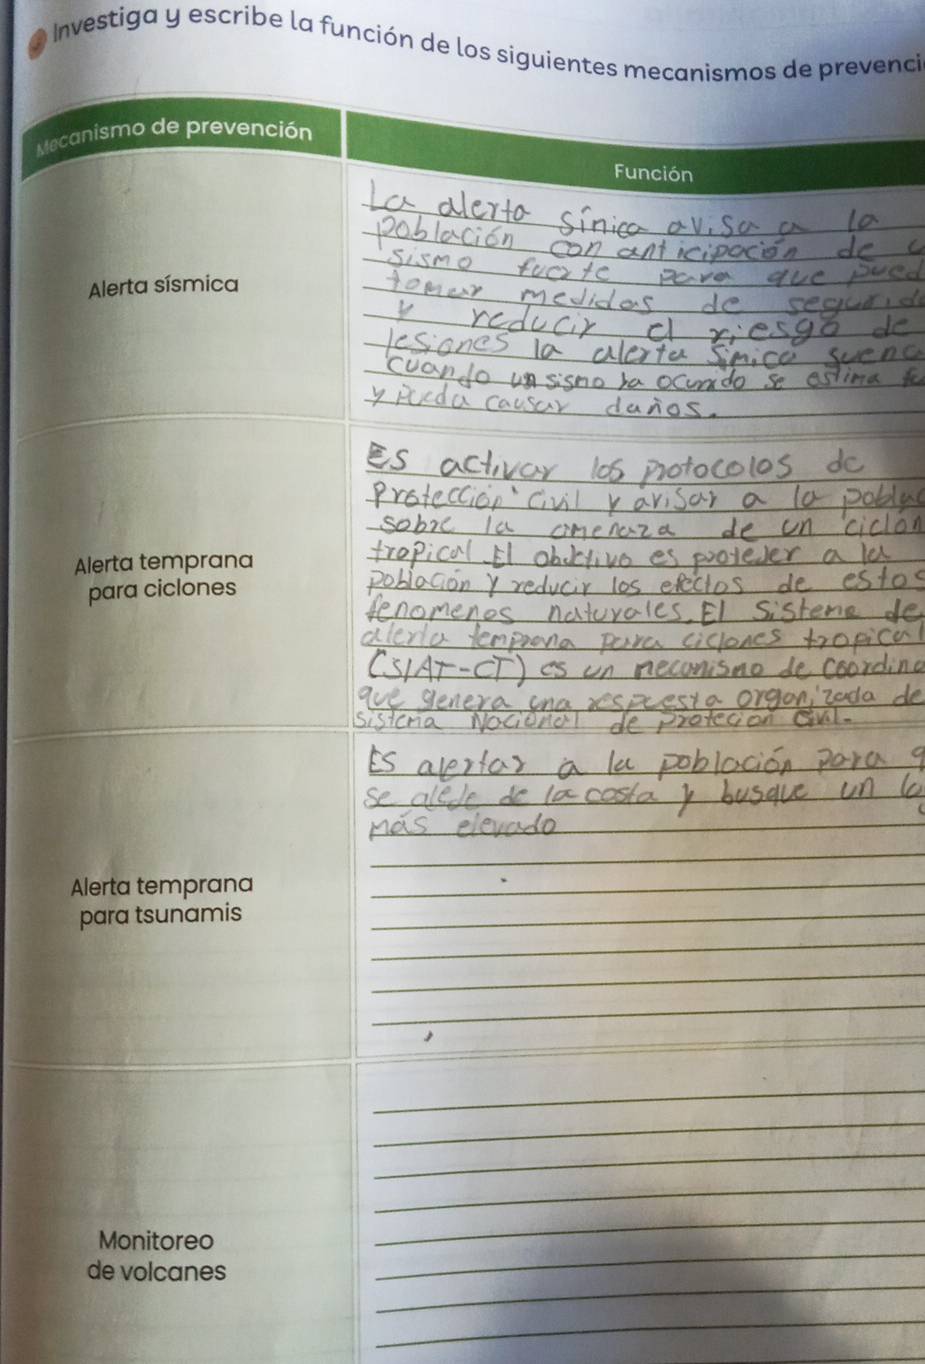 Investiga y escribe la función de los siguientes mecanismos de prevenci
Mecanismo de prevención
Función
Alerta sísmica
La alerta sínica avisa a la
población con anticipación de
sismo fuerte para que pued
tomar medidas de segurid
y reducir el riesgo de
lesiones la alerta sínica suena
cuando un sismo ha ocurrido se estima fu
y pueda causar daños.
Alerta temprana
para ciclones
Es activar los protocolos de
Protección civil y avisar a la poblac
sobre la amenaza de un ciclon
tropical El objetivo es proteger a la
población y reducir los efectos de estos
fenomenos naturales. El sisteme de
alerta temprana para ciclones tropical
(SIAT-CT) es un mecanismo de coordina
que genera una respuesta organizada de
sistema Nacional de protecion civil.
Alerta temprana
para tsunamis
Es alertar a la población para q
se aleje de la costa y busque un
más elevado
Monitoreo
de volcanes